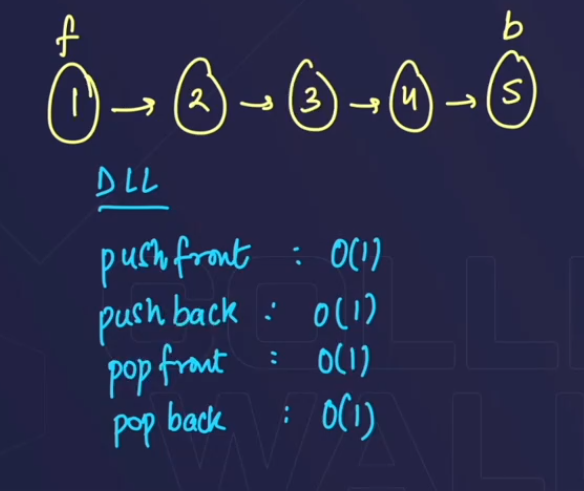 f b
1 → 2 → 3 → 4 → 5
DLL
push front : O(1)
push back : O(1)
pop front : O(1)
pop back : O(1)
COLLE
WALL